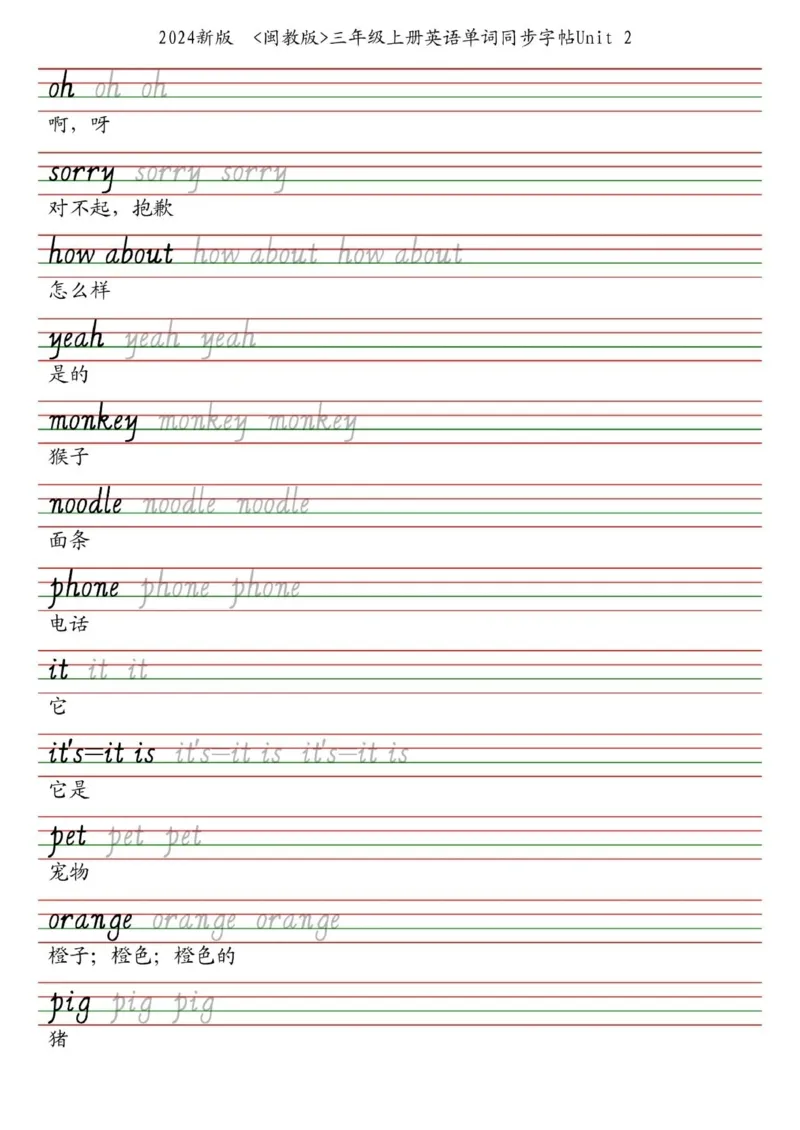 2024新版 <闽教版>三年级上册英语单词同步字帖Unit 2
oh oh oh
啊，呀
sorry sorry sorry
对不起，抱歉
how about how about how about
怎么样
yeah yeah yeah
是的
monkey monkey monkey
猴子
noodle noodle noodle
面条
phone phone phone
电话
it it it
它
it's=it is it's=it is it's=it is
它是
pet pet pet
宠物
orange orange orange
橙子；橙色；橙色的
pig pig pig
猪